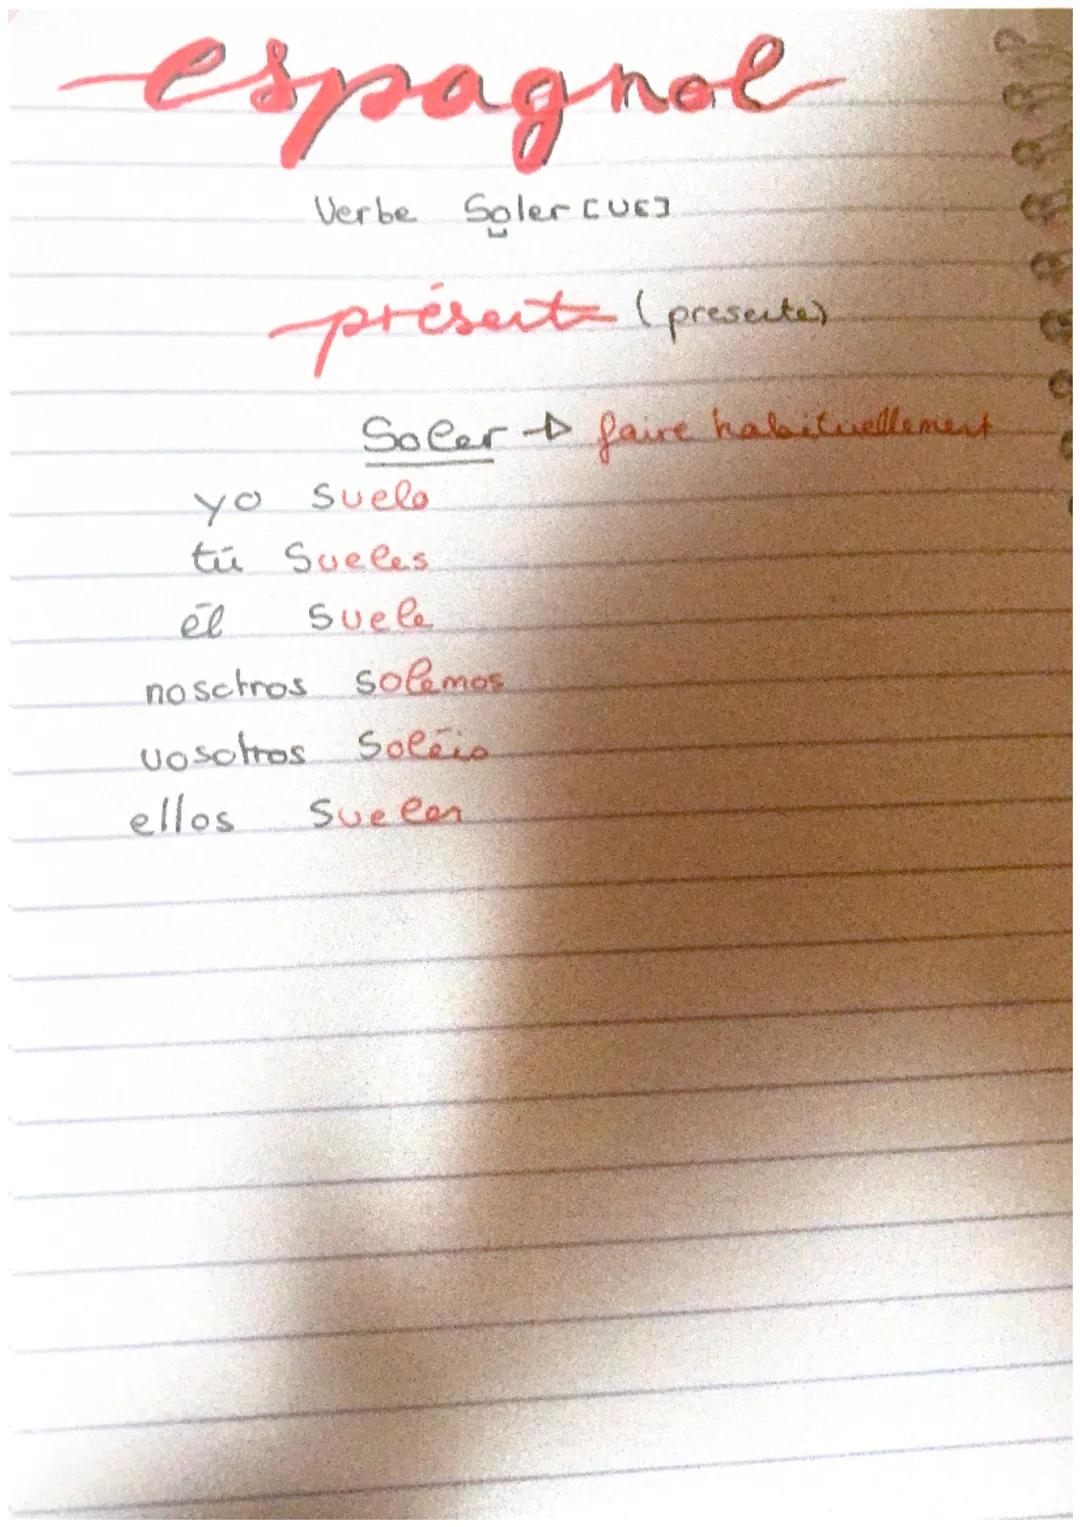 espagnol
Verbe Soler [UE]
présent (presente)
Soler → faire habituellement
yo suelo
tú sueles
él suele
nosotros solemos
vosotros soléis
ellos suelen